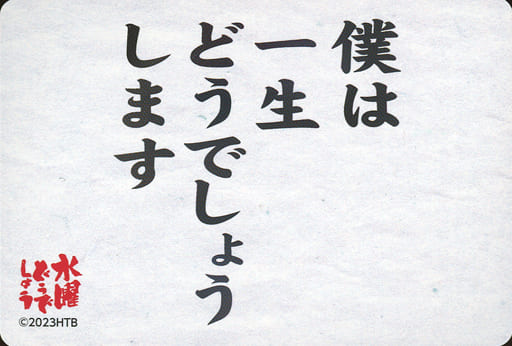 僕は
一生
どうでしょう
します
水曜
どうで
しょう
©2023HTB